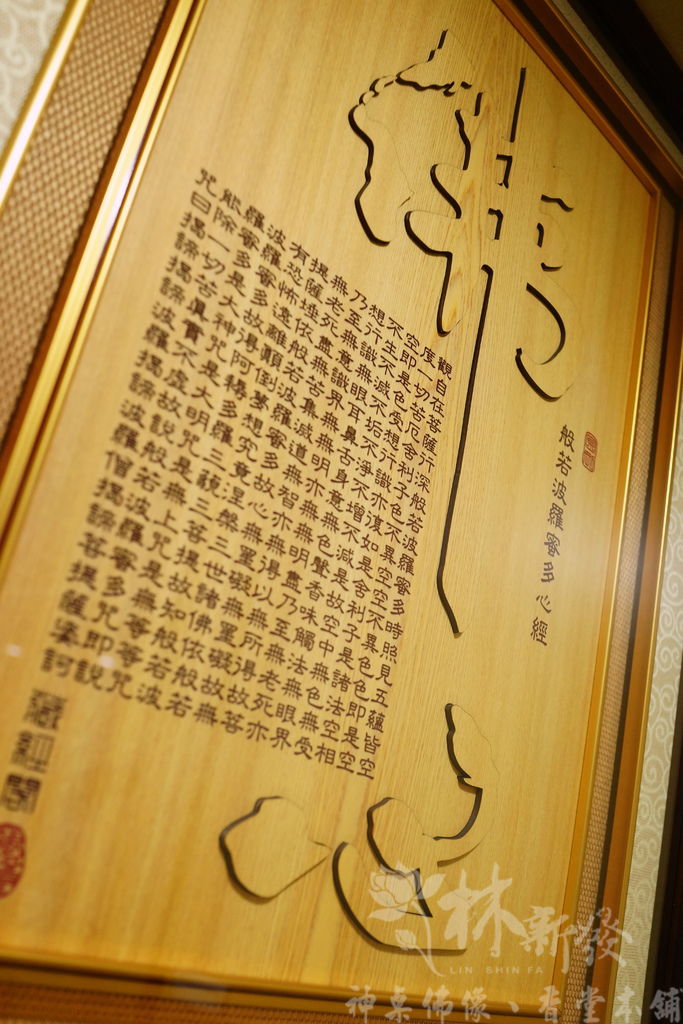 般若波羅蜜多心經
觀自在菩薩行深般若波羅蜜多時照見五蘊皆空
度一切苦厄舍利子色不異空空不異色色即是空
空即是色受想行識亦復如是舍利子是諸法空相
不生不滅不垢不淨不增不減是故空中無色無受
想行識無眼耳鼻舌身意無色聲香味觸法無眼界
乃至無意識界無無明亦無無明盡乃至無老死亦
無老死盡無苦集滅道無智亦無得以無所得故菩
提薩埵依般若波羅蜜多故心無罣礙無罣礙故無
有恐怖遠離顛倒夢想究竟涅槃三世諸佛依般若
波羅蜜多故得阿耨多羅三藐三菩提故知般若波
羅蜜多是大神咒是大明咒是無上咒是無等等咒
能除一切苦眞實不虛故說般若波羅蜜多咒即說
咒曰揭諦揭諦波羅揭諦波羅僧揭諦菩提薩婆訶
藏經閣
林新發
LIN SHIN FA
神桌佛像、香堂本舖